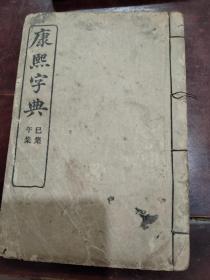 康熙字典
巳集
午集